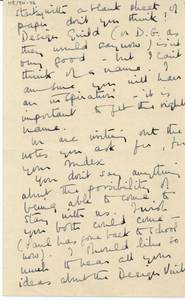 starting with a blank sheet of
paper don't you think?
Design Guild (or D.G. as
they would say now) is not
any good - but I can't
think of a name.
anyhow you will have
an inspiration - it is
important to get the right
name.
We are writing out the
notes you ask for, for
your
You don't say anything
about the possibility of
being able to come to
stay with us. I wish
you both could come -
(Paul has gone back to school
now). I should like so
much to hear all your
ideas about the Design Unit